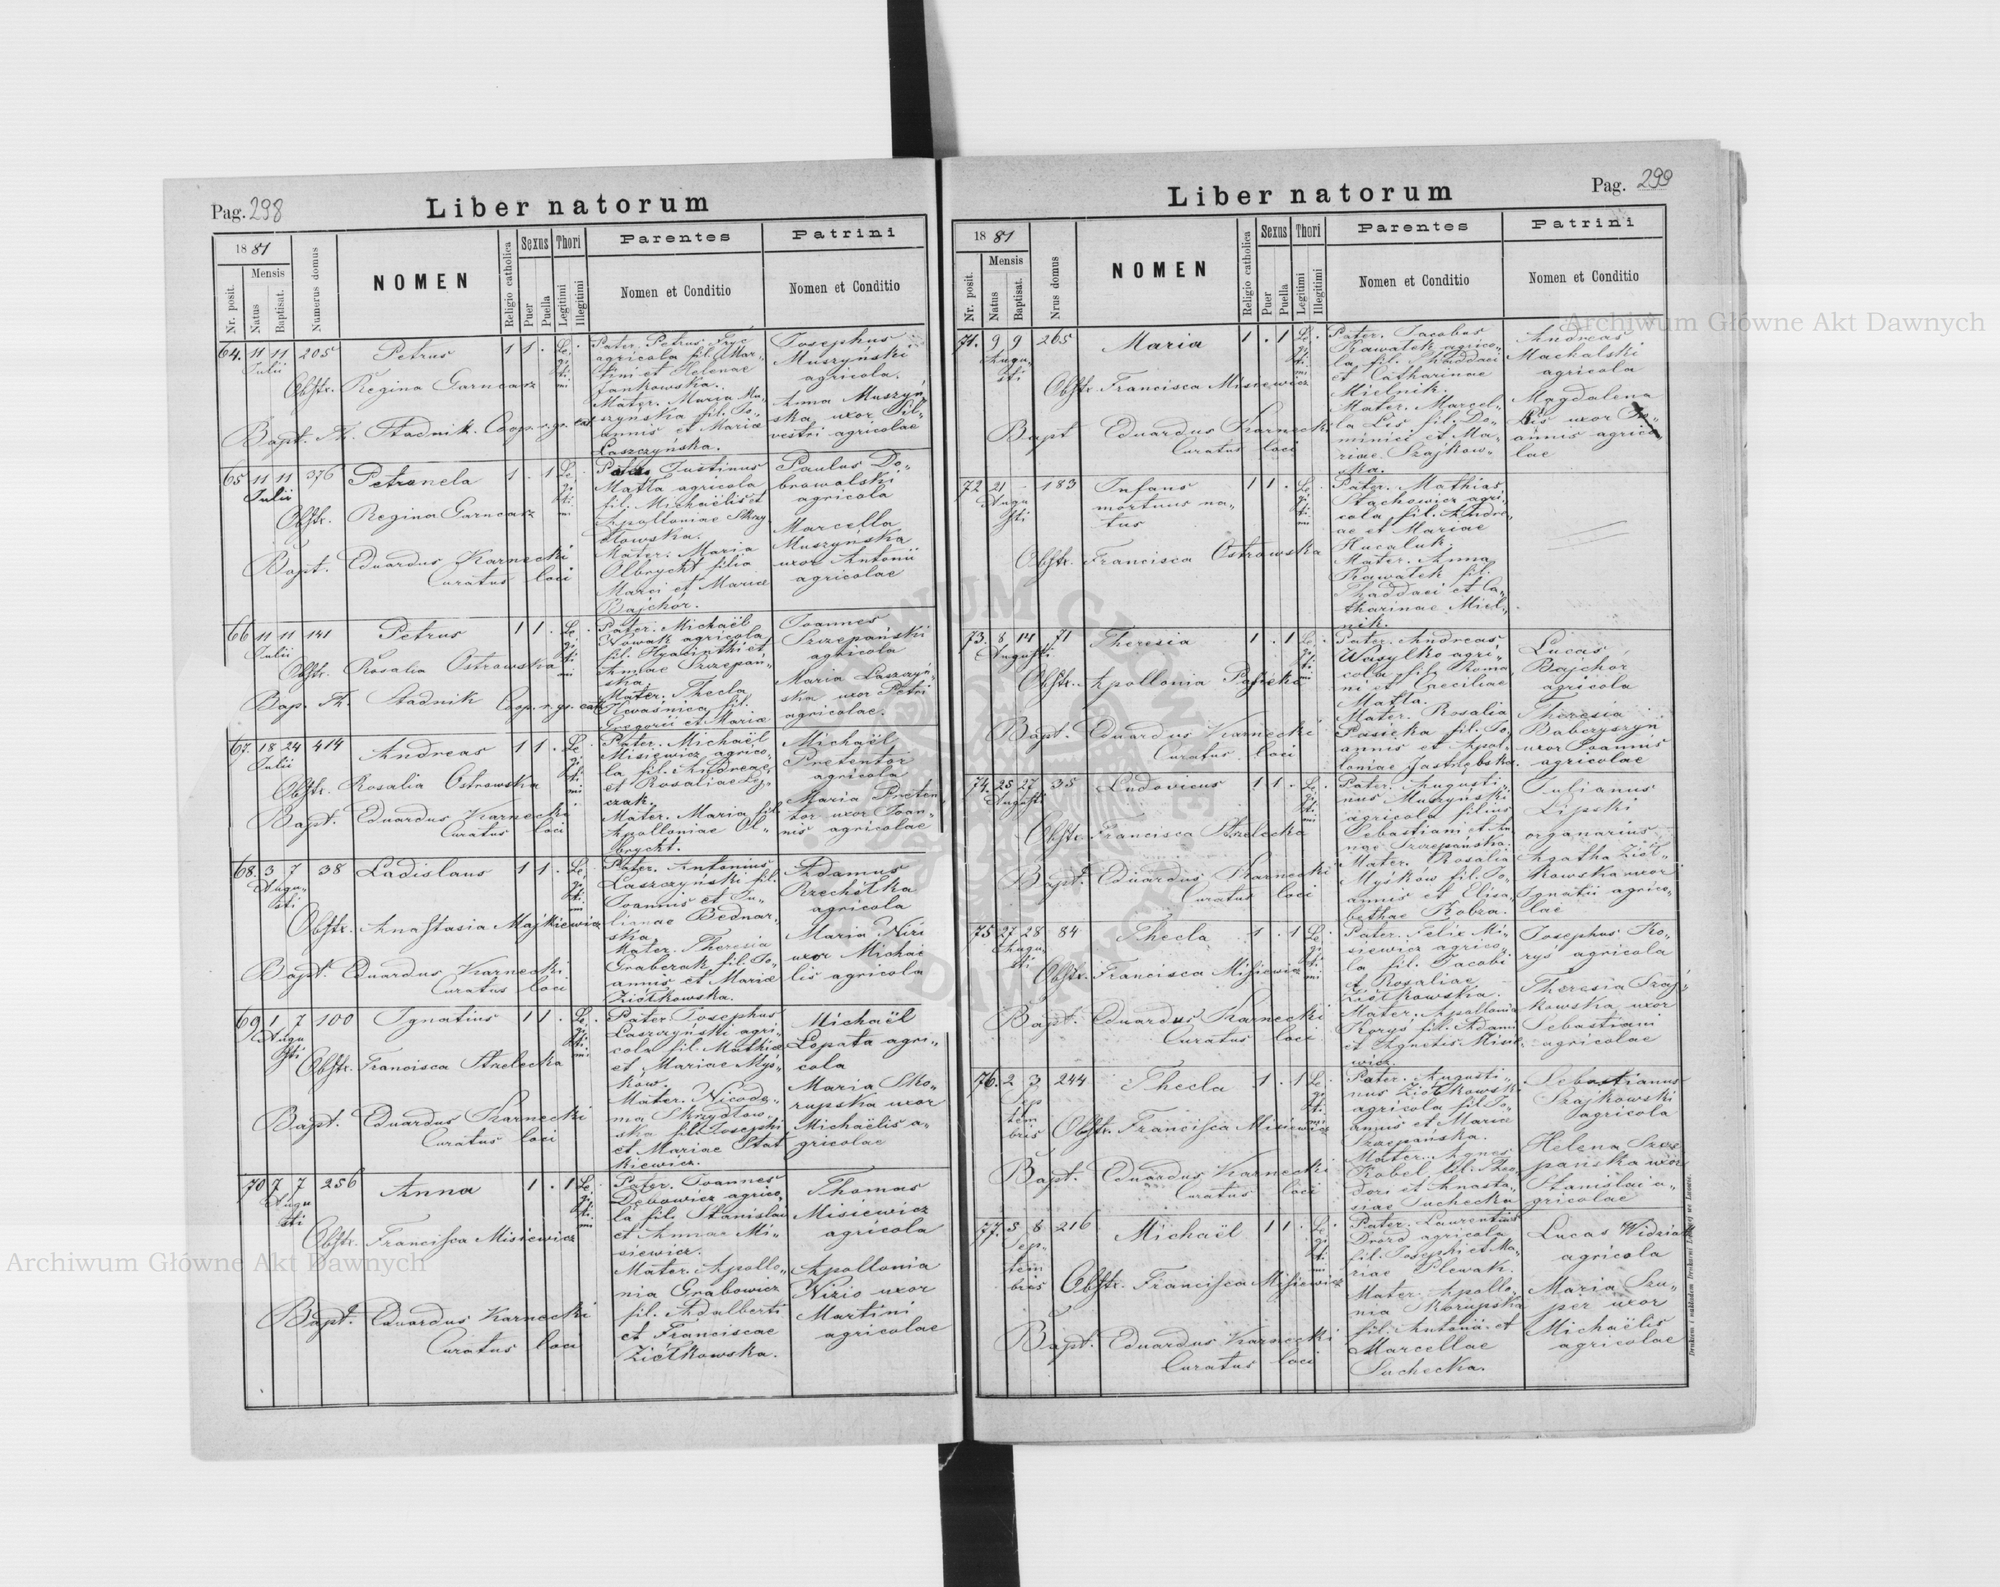 Pag. 298
Liber natorum
1881
Mensis
Nr. posit.
Natus
Baptisat.
Numerus domus
NOMEN
Religio catholica
Sexus
Puer
Puella
Thori
Legitimi
Illegitimi
Parentes
Nomen et Conditio
Patrini
Nomen et Conditio
64. 11 11 205 Petrus 1 1 .
Julii
Obstr. Regina Garncarz
Bapt. Stadnik Coop. r. gr. cat
agricola fil. Mar-
tini et Helenae
Jankowska.
Mater. Maria Mu-
szynska fil. Jo-
annis et Mariae
Laszczyńska.
Josephus
Muszynski
agricola.
Anna Muszyń-
ska uxor Sil-
vestri agricolae
65 11 11 376 Petronela 1 . 1
Julii
Obstr. Regina Garncarz
Bapt. Eduardus Karnecki
Curatus loci
Pater Justinus
Matla agricola
fil. Michaëlis et
Apolloniae Skrzy
dlowska.
Mater. Maria
Olbrycht filia
Marci et Mariae
Bajchór.
Paulus Do-
browolski
agricola
Marcella
Muszyńska
uxor Antonii
agricolae
66 11 11 141 Petrus 1 1 .
Julii
Obstr. Rosalia Ostrowska
Bap. Stadnik Coop. r. gr. cath
Pater. Michaël
Nowak agricola
fil. Hyacinthi et
Annae Szczepań-
ska
Mater. Thecla
Kwaśnica fil.
Gregorii et Mariae
Joannes
Szczepański
agricola
Maria Laszczyń-
ska uxor Petri
agricolae.
67. 18 24 414 Andreas 1 1 .
Julii
Obstr. Rosalia Ostrowska
Bapt. Eduardus Karnecki
Curatus loci
Pater. Michaël
Misiewicz agrico-
la fil. Andreae
et Rosaliae
czak.
Mater. Maria fil.
Apolloniae Ol-
brycht.
Michaël
Pretentor
agricola
Maria Preten-
tor uxor Joan-
nis agricolae
68. 3 7 38 Ladislaus 1 1 .
Augu-
sti
Obstr. Anastasia Majkiewicz
Bapt. Eduardus Karnecki
Curatus loci
Pater. Antonius
Laszczyński fil.
Joannis et Ju-
lianae Bednar-
ska
Mater. Theresia
Grabczak fil. Jo-
annis et Mariae
Ziółkowska.
Adamus
Rzechótka
agricola
Maria
uxor Michaë
lis agricola
69 1 7 100 Ignatius 1 1 .
Augu
sti
Obstr. Francisca Strzelecka
Bapt. Eduardus Karnecki
Curatus loci
Pater Josephus
Laszczyński agri-
cola fil. Mathiae
et Mariae Myś-
ków.
Mater. Nicode-
ma Skrzydlow-
ska fil. Josephi
et Mariae Stat
kiewicz.
Michaël
Lopata agri-
cola
Maria Sko-
rupska uxor
Michaëlis a-
gricolae
70 7 7 256 Anna 1 . 1
Augu
sti
Obstr. Francisca Misiewicz
Bapt. Eduardus Karnecki
Curatus loci
Pater. Joannes
Dębowicz agrico-
la fil. Stanislai
et Annae Mi-
siewicz.
Mater. Apollo-
nia Grabowicz
fil. Adalberti
et Franciscae
Ziółkowska.
Thomas
Misiewicz
agricola
Apollonia
Nizio uxor
Martini
agricolae
Pag. 299
Liber natorum
1881
Mensis
Nr. posit.
Natus
Baptisat.
Nrus domus
NOMEN
Religio catholica
Sexus
Puer
Puella
Thori
Legitimi
Illegitimi
Parentes
Nomen et Conditio
Patrini
Nomen et Conditio
71. 9 9 265 Maria 1 . 1
Augu
sti
Obstr. Francisca Misiewicz
Bapt Eduardus Karnecki
Curatus loci
Pater. Jacobus
Kawatek agrico-
la fil. Thaddaei
et Catharinae
Mielnik.
Mater. Marcel-
la Lis fil. Do-
minici et Ma-
riae Szajkow-
ska.
Andreas
Machalski
agricola
Magdalena
Lis uxor Jo-
annis agrico
lae
72 21 - 183 Infans 1 1 .
Augu
sti
mortuus na-
tus
Obstr. Francisca Ostrowska
Pater. Mathias
Stachowicz agri-
cola fil. Andre-
ae et Mariae
Hucaluk.
Mater. Anna
Kawatek fil.
Thaddaei et Ca-
tharinae Miel-
nik.
73. 8 14 71 Theresia 1 . 1
Augusti
Obstr. Apollonia Pasicka
Bapt. Eduardus Karnecki
Curatus loci
Pater. Andreas
Wasylko agri-
cola fil. Roma
ni et Caeciliae
Matla.
Mater. Rosalia
Pasicka fil. Jo-
annis et Apol-
loniae Jastrzębska
Lucas
Bajchór
agricola
Theresia
Babczyszyn
uxor Joannis
agricolae
74. 25 27 35 Ludovicus 1 1 .
Augusti
Obstr. Francisca Strzelecka
Bapt. Eduardus Karnecki
Curatus loci
Pater. Augusti-
nus Muszynski
agricola filius
Sebastiani et An
nae Szczepańska.
Mater. Rosalia
Myśków fil. Jo-
annis et Elisa-
bethae Kobza.
Julianus
Lipski
organarius
Agatha Ziół-
kowska uxor
Ignatii agrico-
lae
75 27 28 84 Thecla 1 . 1
Augu-
sti
Obstr. Francisca Misiewicz
Bapt. Eduardus Karnecki
Curatus loci
Pater. Felix Mi-
siewicz agrico-
la fil. Jacobi
et Rosaliae
Ziółkowska.
Mater. Apollonia
Korys fil. Adami
et Agnetis Misie-
wicz.
Josephus Ko-
rys agricola
Theresia Szaj-
kowska uxor
Sebastiani
agricolae
76. 2 3 244 Thecla 1 . 1
Sep
tem
bris
Obstr. Francisca Misiewicz
Bapt. Eduardus Karnecki
Curatus loci
Pater. Augusti-
nus Ziółkowski
agricola fil. Jo-
annis et Mariae
Szczepańska.
Mater. Agnes
Kobel fil. Theo
dori et Anasta-
siae Suchecka
Sebastianus
Szajkowski
agricola
Helena Szcze
pańska uxor
Stanislai a-
gricolae
77. 5 8 216 Michaël 1 1 .
Sep-
tem
bris
Obstr. Francisca Misiewicz
Bapt. Eduardus Karnecki
Curatus loci
Pater. Laurentius
Drozd agricola
fil. Josephi et Ma-
riae Plewak.
Mater. Apollo-
nia Skorupska
fil. Antonii et
Marcellae
Suchecka.
Lucas Widziak
agricola
Maria Szu-
per uxor
Michaëlis
agricolae
Archiwum Główne Akt Dawnych
Archiwum Główne Akt Dawnych